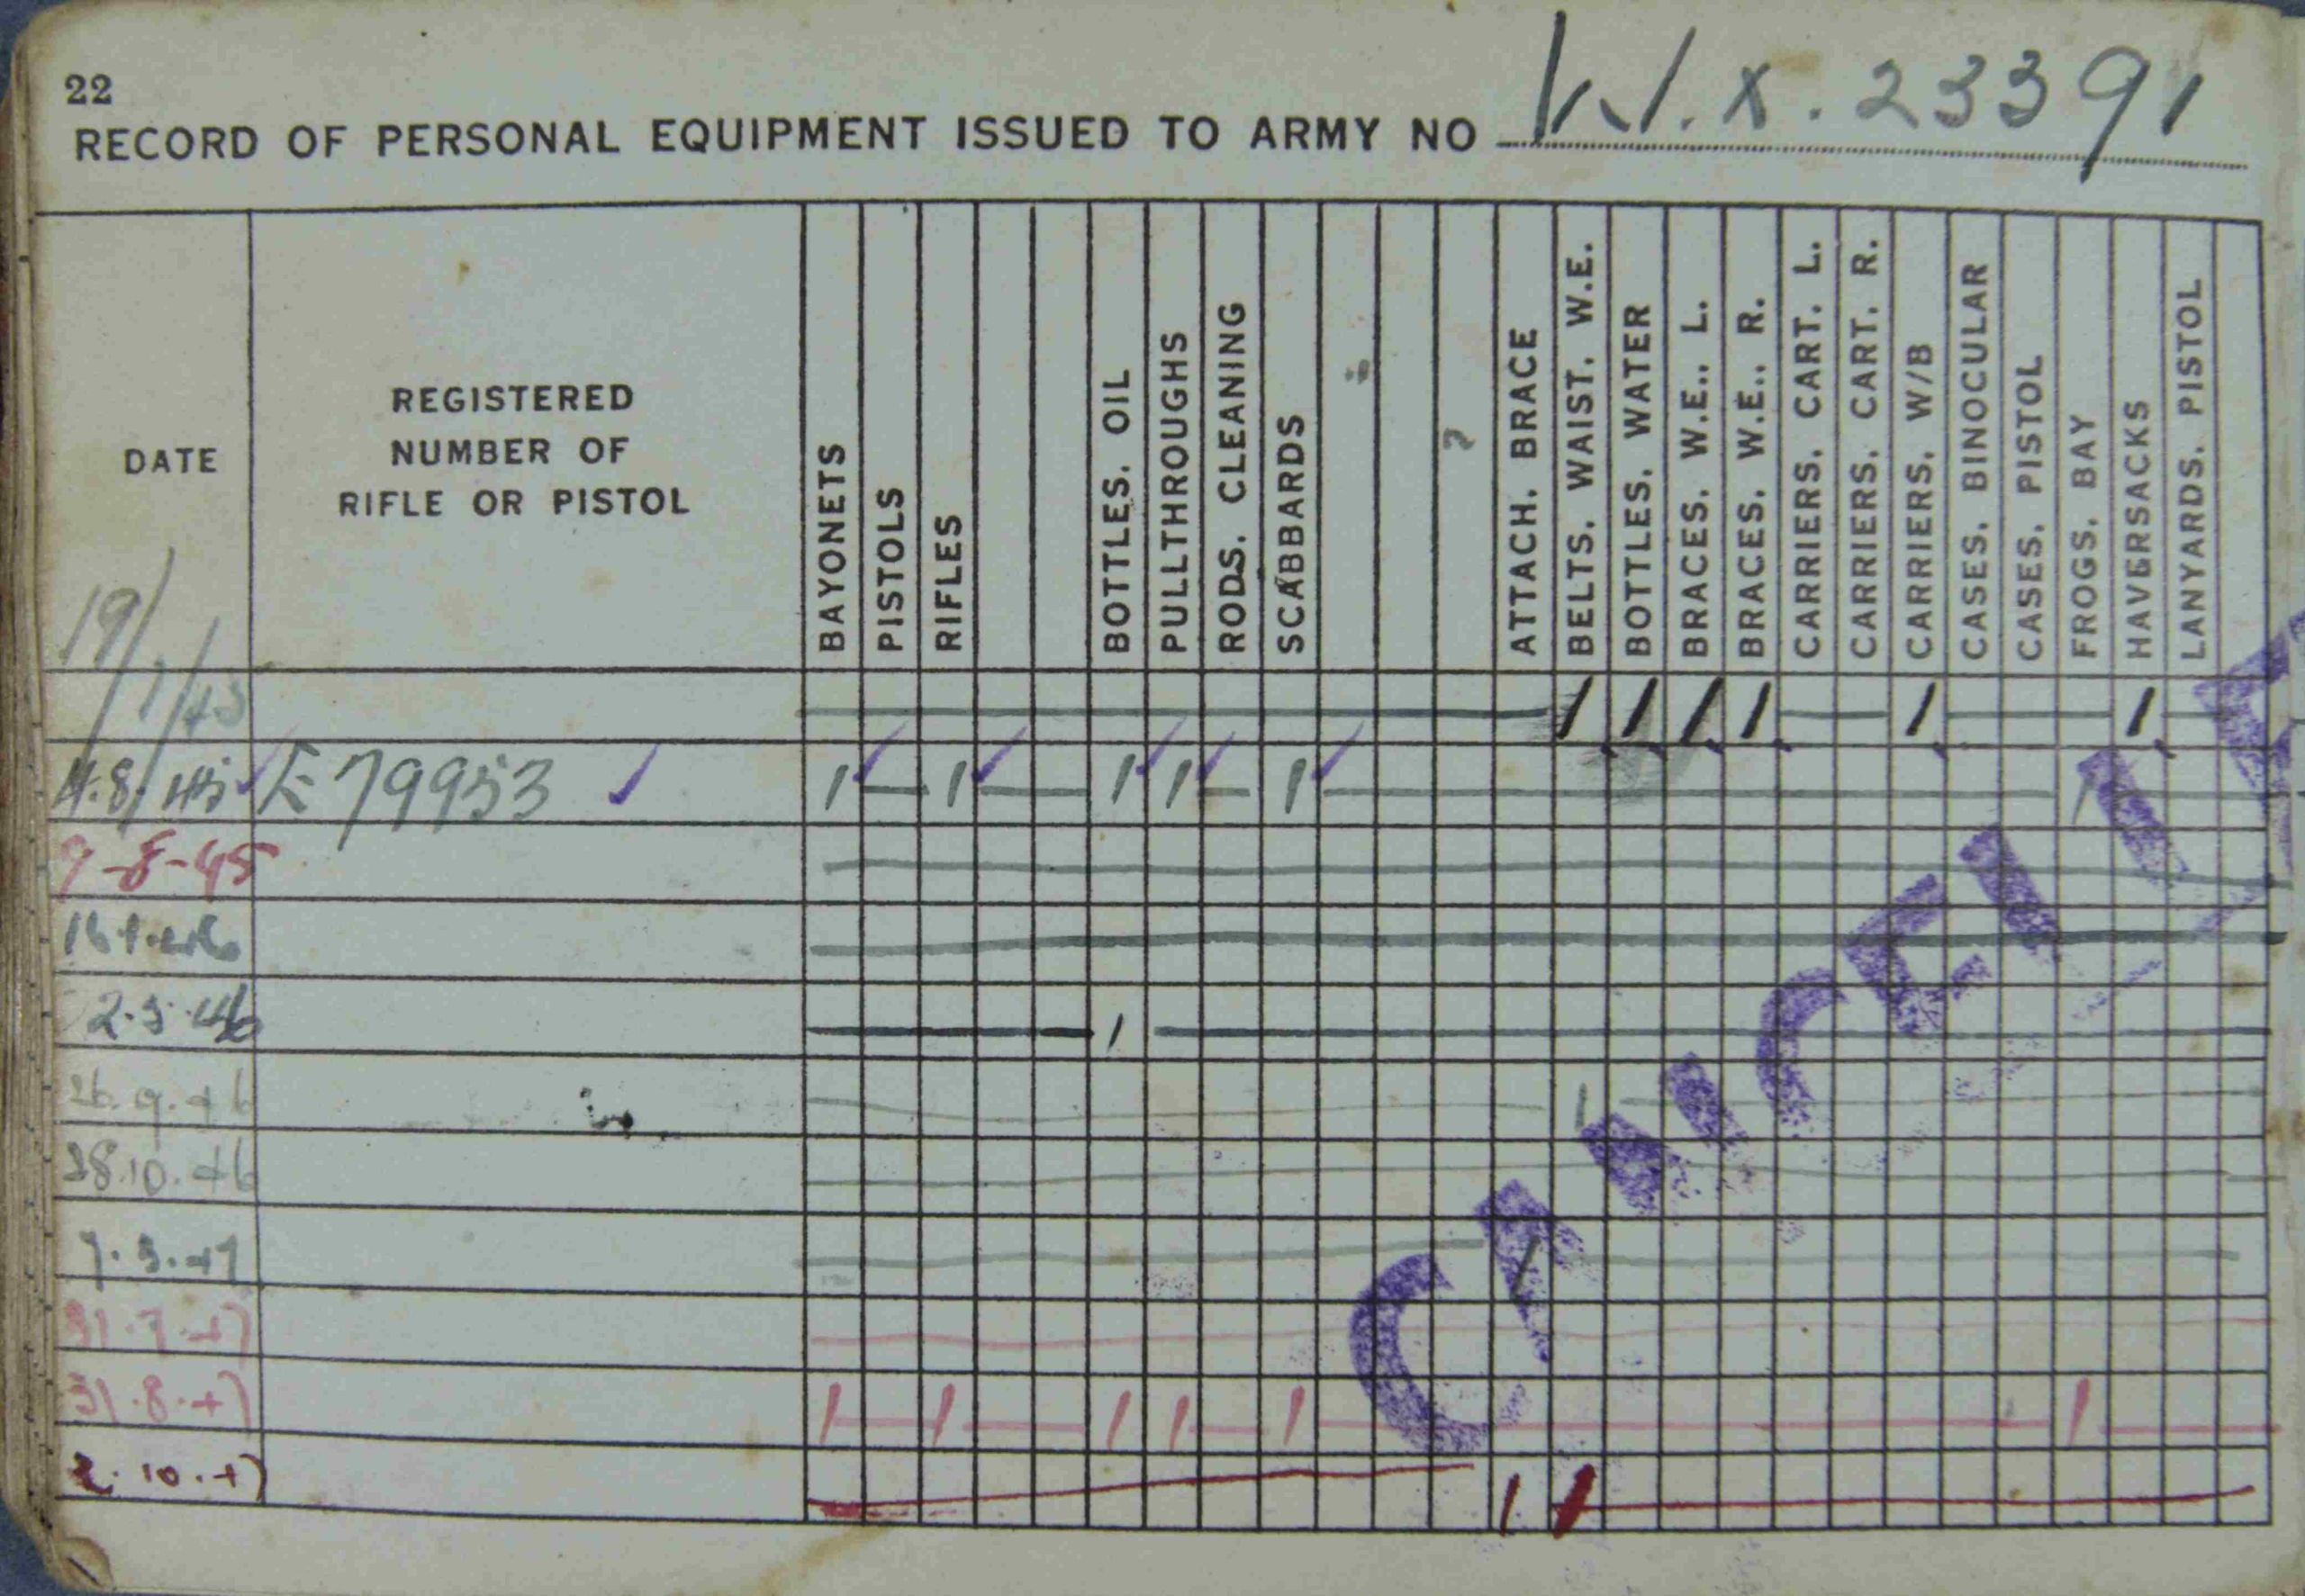 22
RECORD OF PERSONAL EQUIPMENT ISSUED TO ARMY NO W.X.23391
DATE
REGISTERED
NUMBER OF
RIFLE OR PISTOL
BAYONETS
PISTOLS
RIFLES
BOTTLES. OIL
PULLTHROUGHS
RODS. CLEANING
SCABBARDS
ATTACH. BRACE
BELTS. WAIST. W.E.
BOTTLES. WATER
BRACES. W.E.. L.
BRACES. W.E.. R.
CARRIERS. CART. L.
CARRIERS. CART. R.
CARRIERS. W/B
CASES. BINOCULAR
CASES. PISTOL
FROGS. BAY
HAVERSACKS
LANYARDS. PISTOL
19/1/45 1 1 1 1 1 1
4.8.45 E79953 1 1 1 1 1 1
9-8-45
16.1.46
2.3.46 1
26.9.46 1
28.10.46
7.3.47 1
31.7.47
31.8.47 1 1 1 1 1 1
2.10.47 1 1
CANCELLED